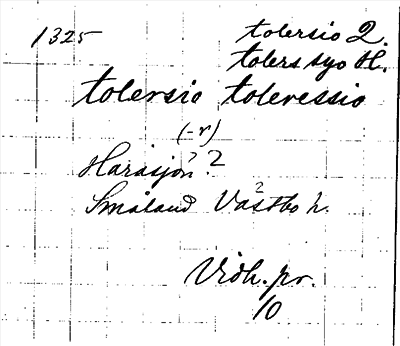 1325 tolersio 2.
tolers syo H.
tolersio toleressio
(-r)
Harasjön? 2
Småland Västbo h.
2
Vidh. pr.
10